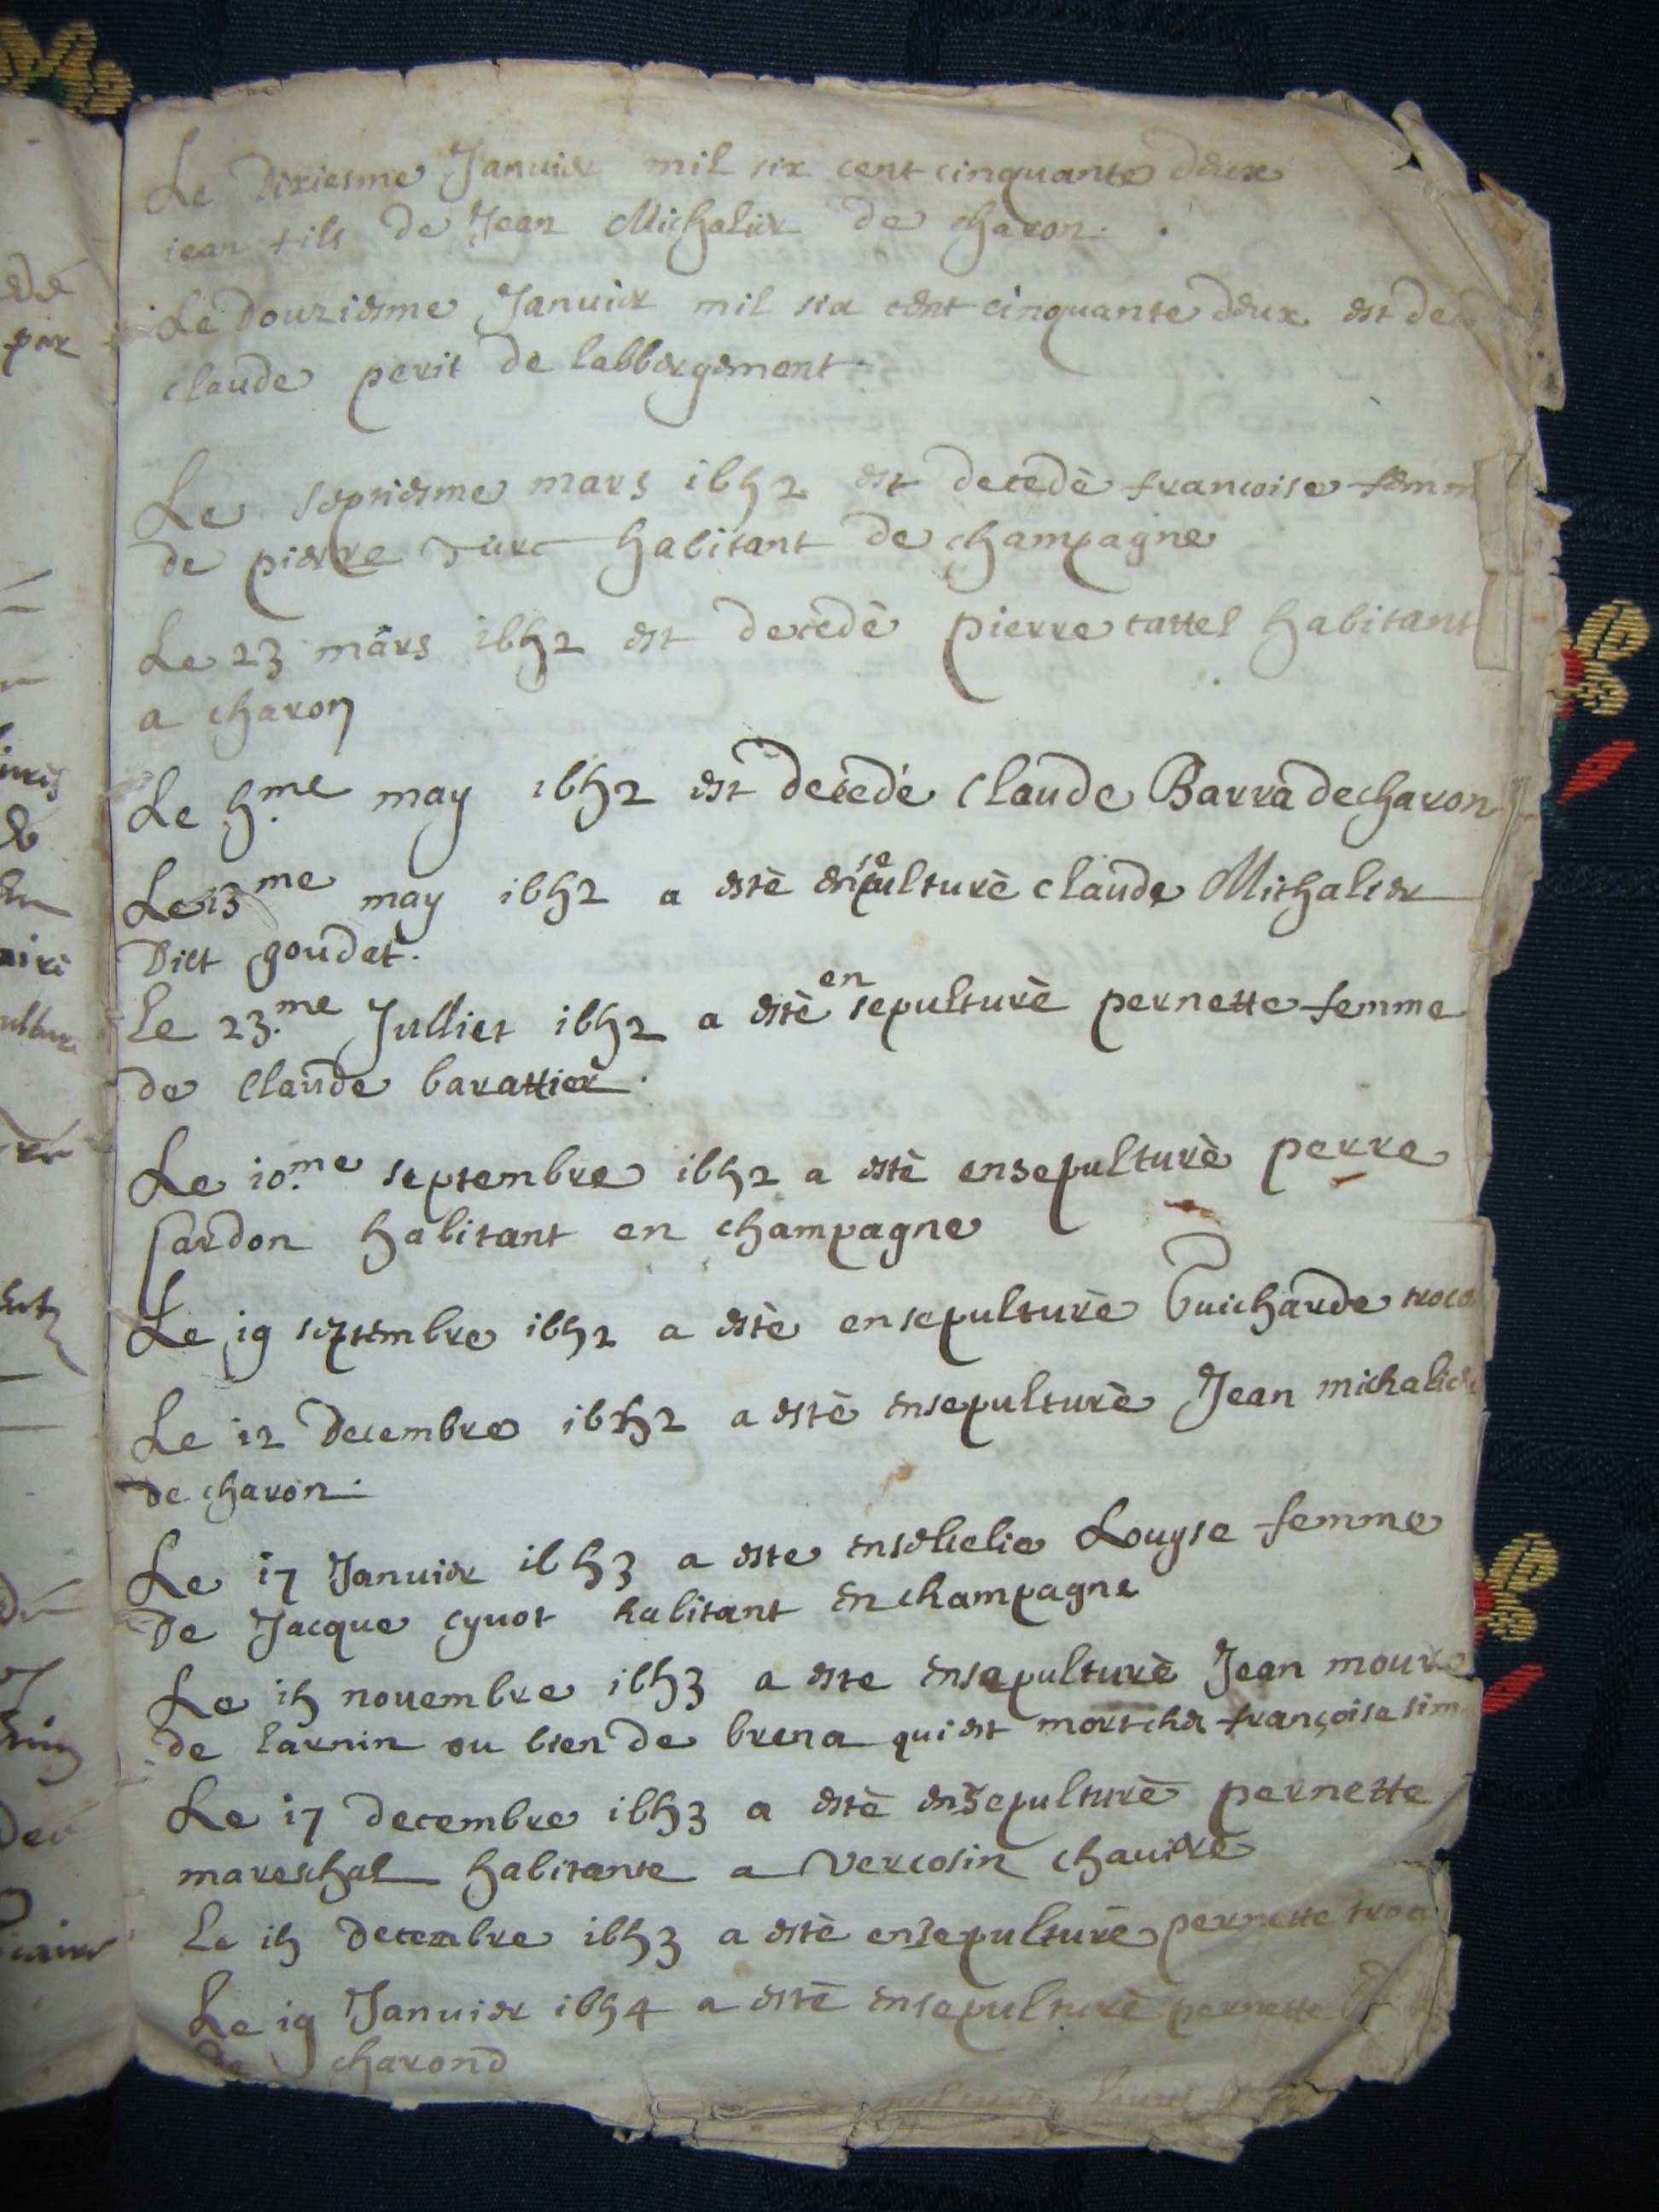 Le Dixiesme Januier mil six cent cinquante deux
jean fils de Jean Michalier de charon.
Le douziesme Januier mil six cent cinquante deux est
claude petit de labbergement
Le septiesme mars 1652 est decedè francoise
de pierre Turc habitant de champagne
Le 23 mars 1652 est decedè pierre tattel habitant
a charon
Le 5.me may 1652 est decedé Claude Barra de charon
Le 13me may 1652 a estè ensepulturè claude Michalier
Dict goudet.
Le 23.me Julliet 1652 a estè en sepulturè pernette femme
de Claude barattier.
Le 10.me septembre 1652 a estè ensepulturè perre
Cardon habitant en champagne
Le 19 septembre 1652 a estè ensepulturè Guicharde
Le 12 Decembre 1652 a estè ensepulturè Jean michalier
de charon.
Le 17 Januier 1653 a este Louyse femme
De Jacque cyuot habitant en champagne
Le 15 nouembre 1653 a este ensepulturè Jean
de larnin ou bien de brena qui est mort chez françoise
Le 17 decembre 1653 a estè ensepulturè pernette
mareschal habitante a Vercosin
Le 15 Decembre 1653 a estè ensepulturè pernette
Le 19 Januier 1654 a estè ensepulturè pernette
De charond